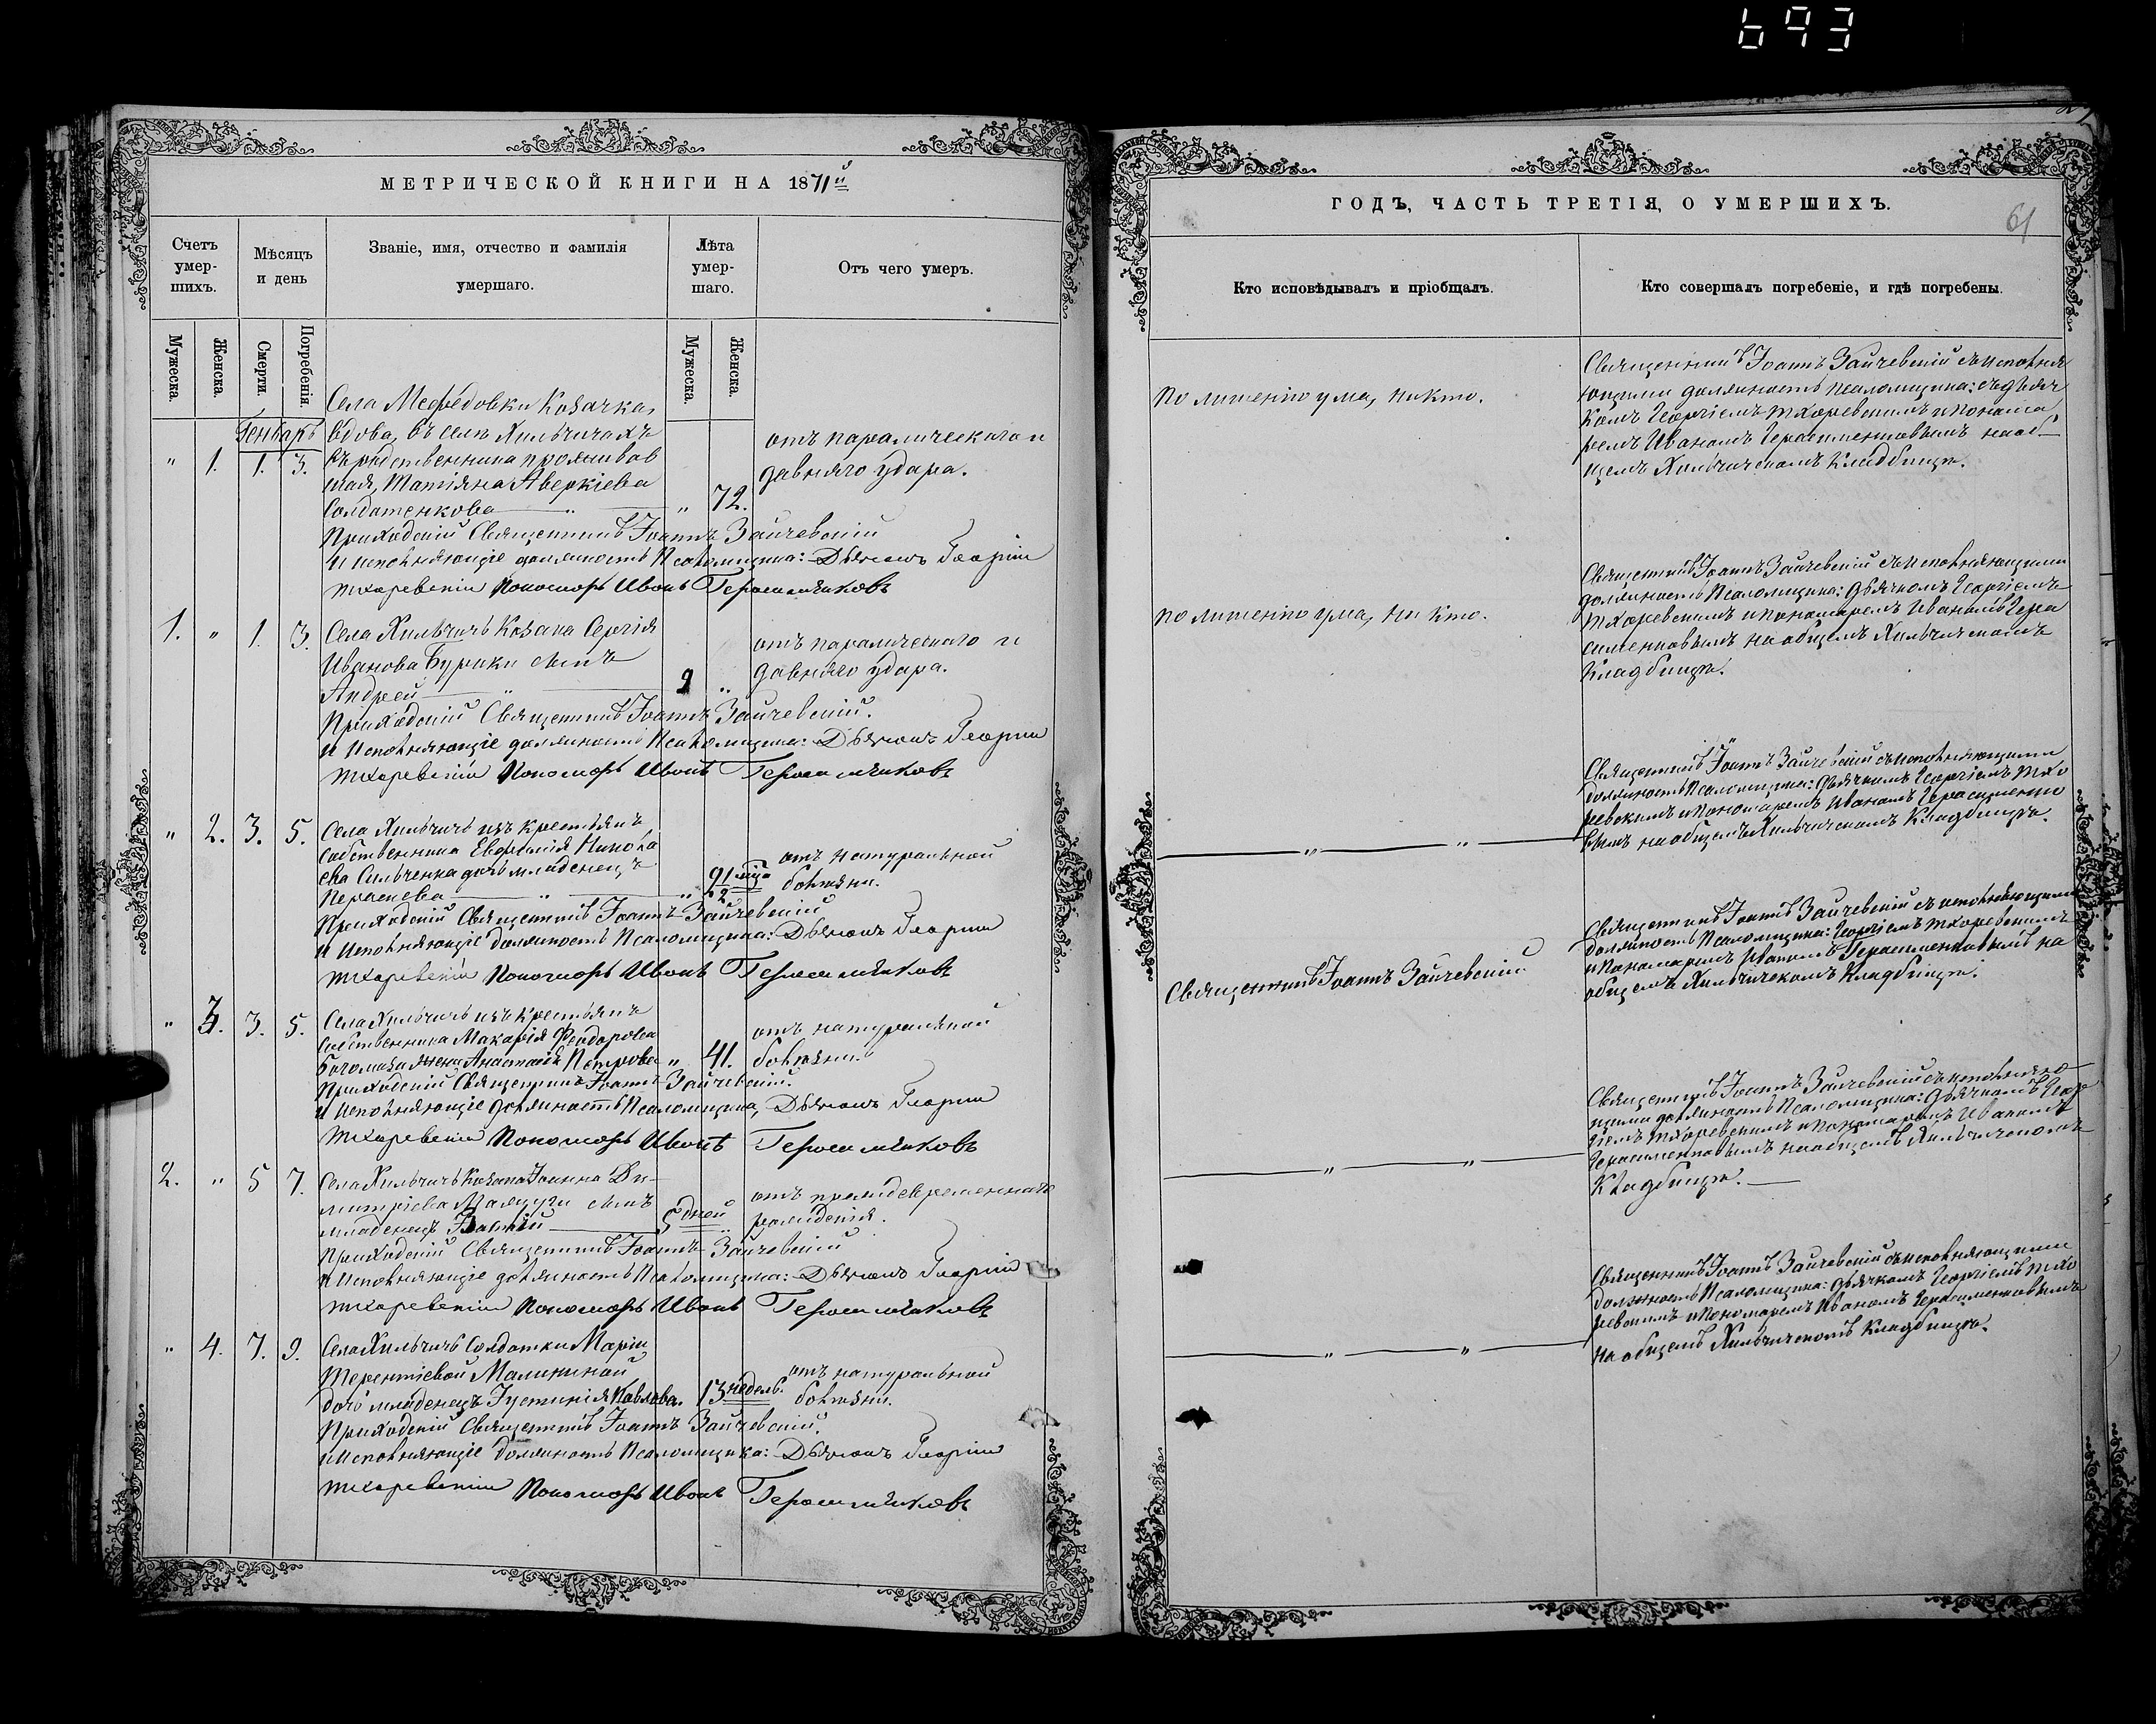 693
МЕТРИЧЕСКОЙ КНИГИ НА 1871й
Счетъ умер-шихъ.
Мѣсяцъ и день
Званіе, имя, отчество и фамилія умершаго.
Лѣта умер-шаго.
Отъ чего умеръ.
Мужеска.
Женска.
Смерти.
Погребенія.
Мужеска.
Женска.
Генварь
" 1. 1. 3.
Села Мефедовки Козачка,
вдова, въ селѣ Хильчичахъ
у родственника проживав
шая, Татіяна Аверкіева
Солдатенкова " " 72.
отъ паралическаго и
давняго удара.
Приходскій Священникъ Іоаннъ Зайчевскій
И исполняющіе должность Псаломщика: Дьячокъ Георгій
Тхоревскій Пономарь Иванъ Герасименковъ
1. " 1. 3.
Села Хильчичъ Козака Сергія
Иванова Бурики сынъ
Андрей " 9 "
отъ паралическаго и
давняго удара.
Приходскій Священникъ Іоаннъ Зайчевскій.
И Исполняющіе должность Псаломщика: Дьячокъ Георгій
Тхоревскій Пономарь Иванъ Герасименковъ
" 2. 3. 5.
Села Хильчичъ изъ крестьянъ
собственника Евфимія Никола
ева Сильченка дочь младенецъ
" "
отъ натуральной
болѣзни.
Приходскій Священникъ Іоаннъ Зайчевскій
И Исполняющіе должность Псаломщика: Дьячокъ Георгій
Тхоревскій Пономарь Иванъ Герасименковъ
" 3. 3. 5.
Села Хильчичъ изъ крестьянъ
собственника Макарія Феодорова
Богомаза жена Анастасія Петрова " 41.
отъ натуральной
болѣзни.
Приходскій Священникъ Іоаннъ Зайчевскій.
И Исполняющіе должность Псаломщика, Дьячокъ Георгій
Тхоревскій Пономарь Иванъ Герасименковъ
2. " 5 7.
Села Хильчичъ Козака Іоанна Ди-
митріева сынъ
младенецъ 5 дней "
отъ преждевременнаго
рожденія.
Приходскій Священникъ Іоаннъ Зайчевскій
И Исполняющіе должность Псаломщика: Дьячокъ Георгій
Тхоревскій Пономарь Иванъ Герасименковъ
" 4. 7. 9.
Села Хильчичъ Солдатки Маріи
Терентіевой Малининой
дочь младенецъ Іустинія Павлова. 13 недель.
отъ натуральной
болѣзни.
Приходскій Священникъ Іоаннъ Зайчевскій.
И Исполняющіе должность Псаломщика: Дьячокъ Георгій
Тхоревскій Пономарь Иванъ Герасименковъ
ГОДЪ, ЧАСТЬ ТРЕТІЯ, О УМЕРШИХЪ.
61
Кто исповѣдывалъ и пріобщалъ.
Кто совершалъ погребеніе, и гдѣ погребены.
По лишенію ума, никто.
Священникъ Іоаннъ Зайчевскій съ исполня
ющими должность Псаломщика: съ дьяч
комъ Георгіемъ Тхоревскимъ и понома
ремъ Иваномъ Герасименковымъ на об-
щемъ Хильчичскомъ Кладбищѣ.
По лишенію ума, никто.
Священникъ Іоаннъ Зайчевскій съ исполняющими
должность Псаломщика: Дьячкомъ Георгіемъ
Тхоревскимъ и Пономаремъ Иваномъ Гера
сименковымъ на общемъ Хильчичскомъ
Кладбищѣ.
" "
Священникъ Іоаннъ Зайчевскій съ исполняющими
должность Псаломщика: Дьячкомъ Георгіемъ Тхо
ревскимъ и Пономаремъ Иваномъ Герасименко
вымъ на общемъ Хильчичскомъ Кладбищѣ.
Священникъ Іоаннъ Зайчевскій
Священникъ Іоаннъ Зайчевскій съ исполняющими
должность Псаломщика: Георгіемъ Тхоревскимъ
и Пономаремъ Иваномъ Герасименковымъ на
общемъ Хильчичскомъ Кладбищѣ.
" "
Священникъ Іоаннъ Зайчевскій съ исполняю-
щими должность Псаломщика: Дьячкомъ Геор
гіемъ Тхоревскимъ и Пономаремъ Иваномъ
Герасименковымъ на общемъ Хильчичскомъ
Кладбищѣ.
" "
Священникъ Іоаннъ Зайчевскій съ исполняющими
должность Псаломщика: Дьячкомъ Георгіемъ Тхо
ревскимъ и Пономаремъ Иваномъ Герасименковымъ
на общемъ Хильчичскомъ Кладбищѣ.